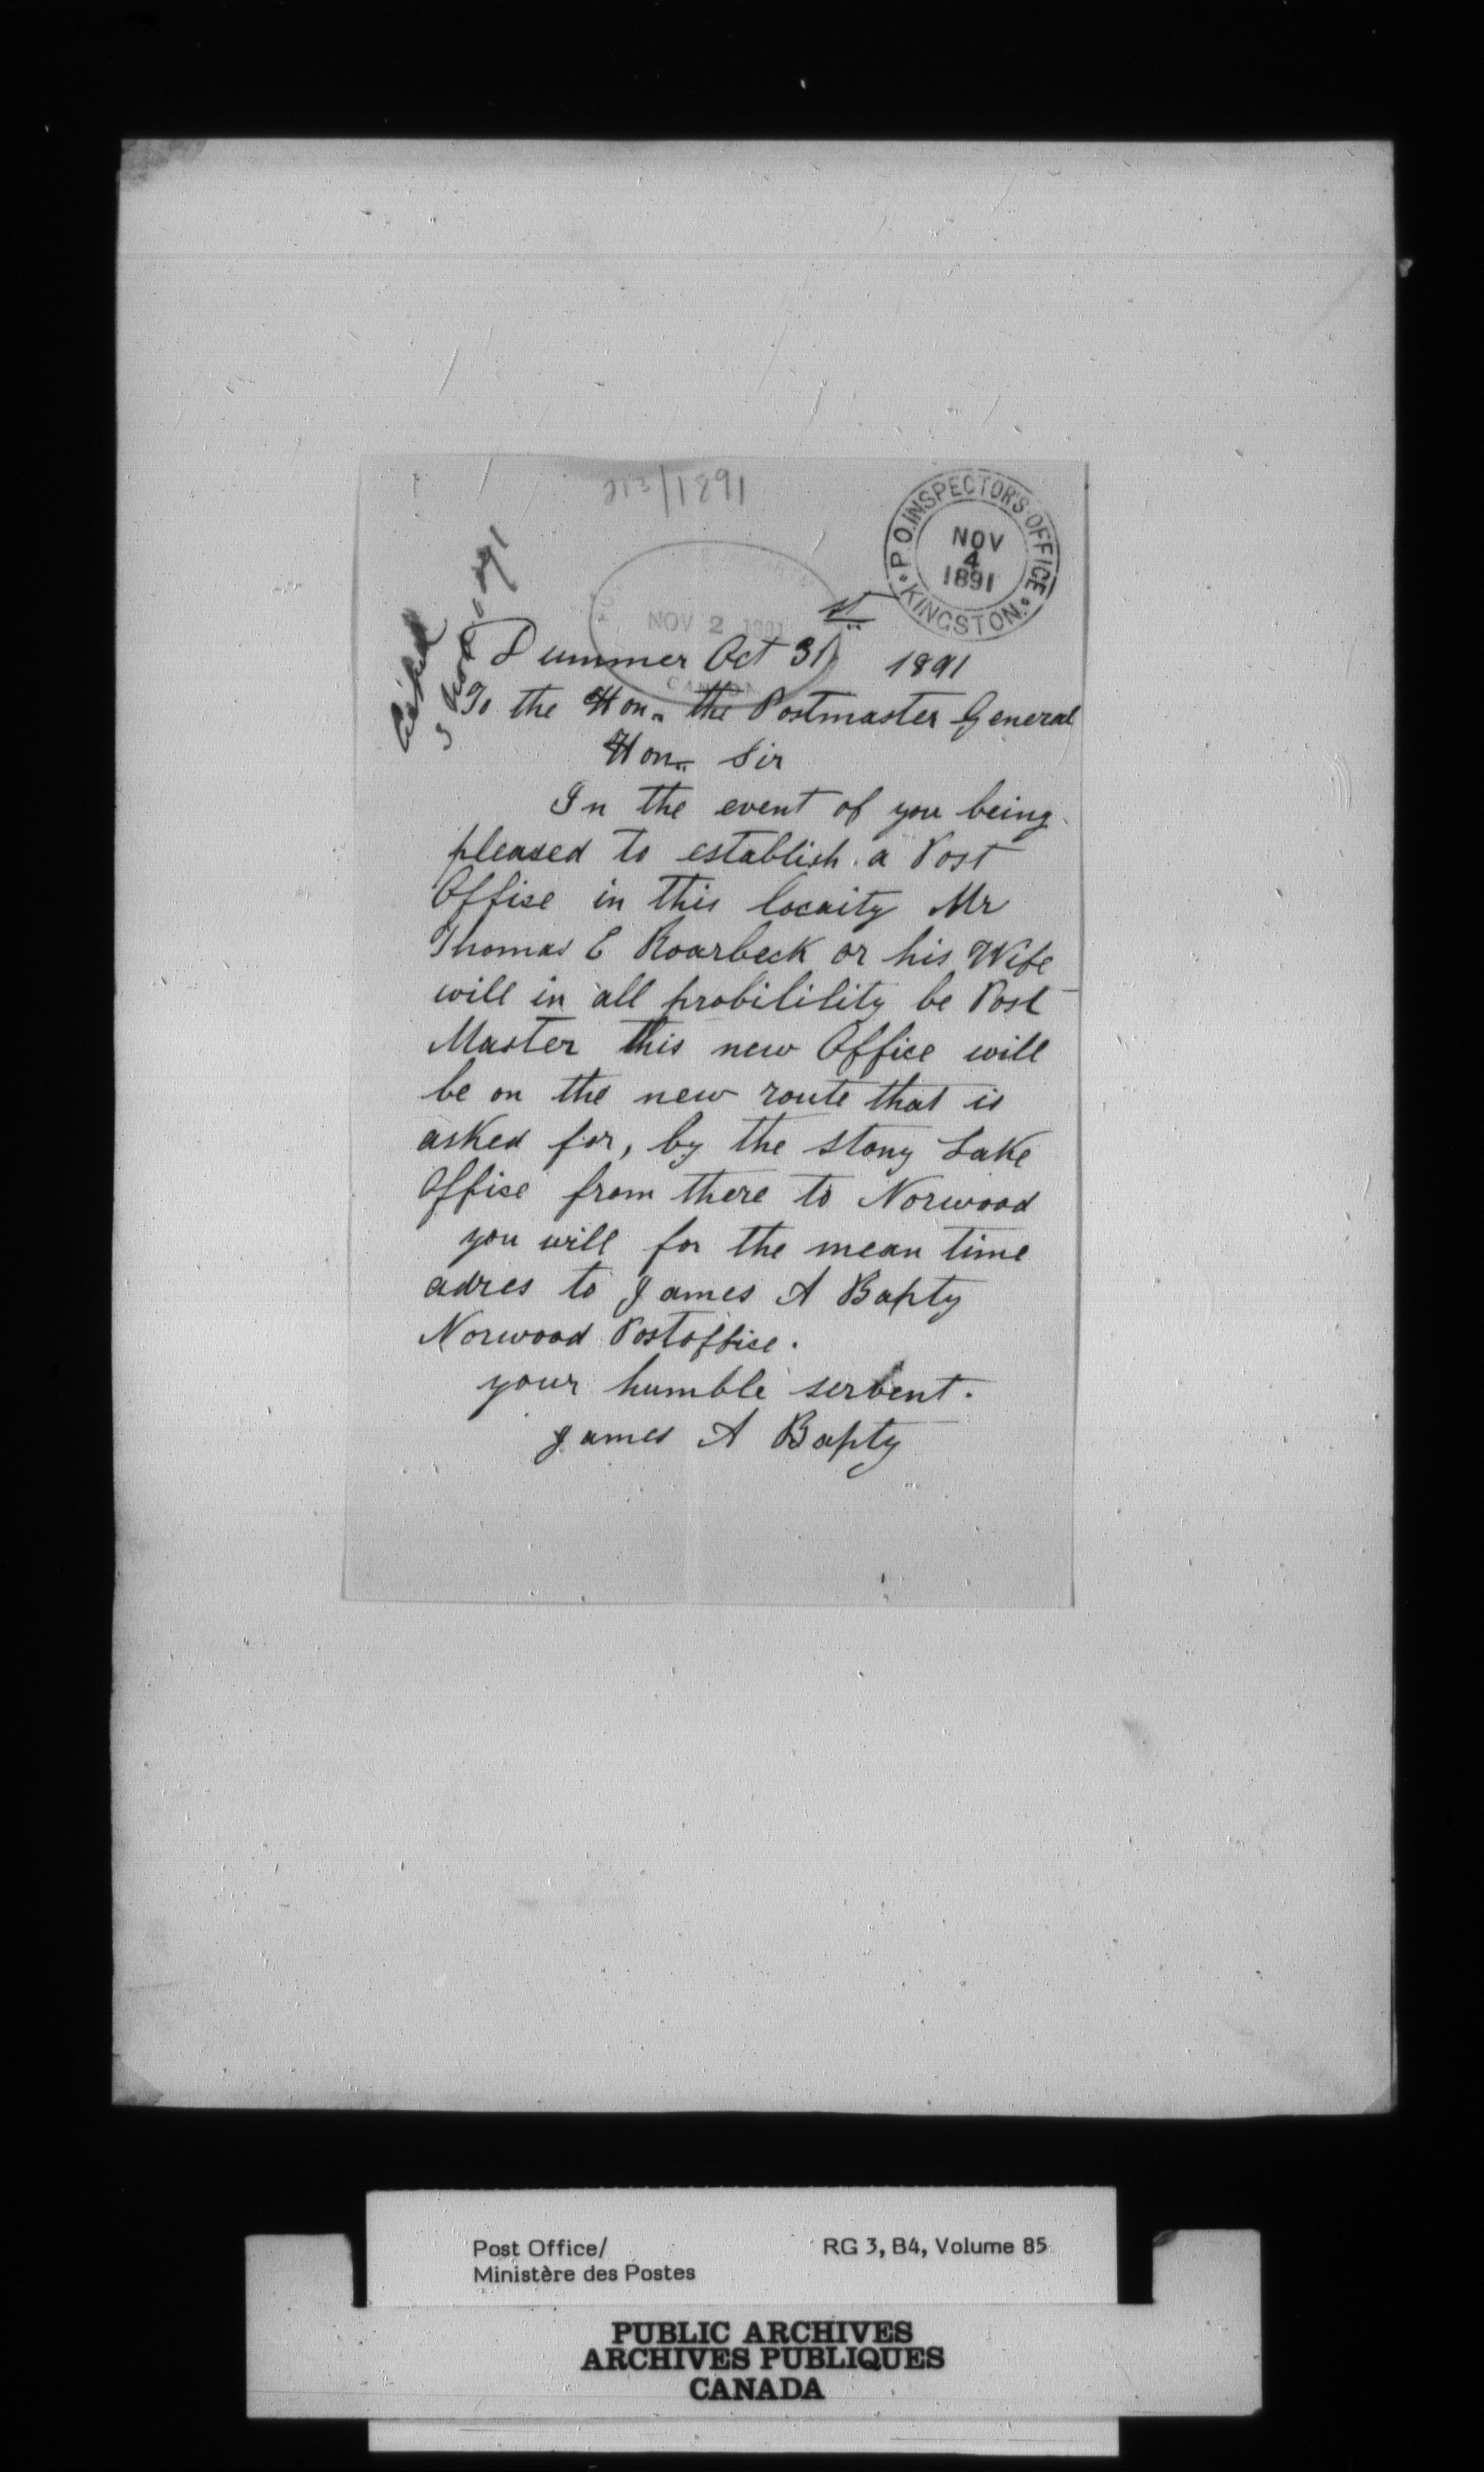 213/1891
P.O. INSPECTOR'S OFFICE
NOV
4
1891
KINGSTON.
NOV 2 1891
CANADA
Dummer Oct 31st 1891
To the Hon. the Postmaster General
Hon. Sir
In the event of you being
pleased to establish a Post
Office in this locaity Mr
Thomas E Roarbeck or his Wife
will in all probilility be Post
Master this new Office will
be on the new route that is
asked for, by the stony Lake
Office from there to Norwood
you will for the mean time
adres to James A Bapty
Norwood Postoffice.
your humble servent.
James A Bapty
Post Office/
Ministère des Postes
RG 3, B4, Volume 85
PUBLIC ARCHIVES
ARCHIVES PUBLIQUES
CANADA